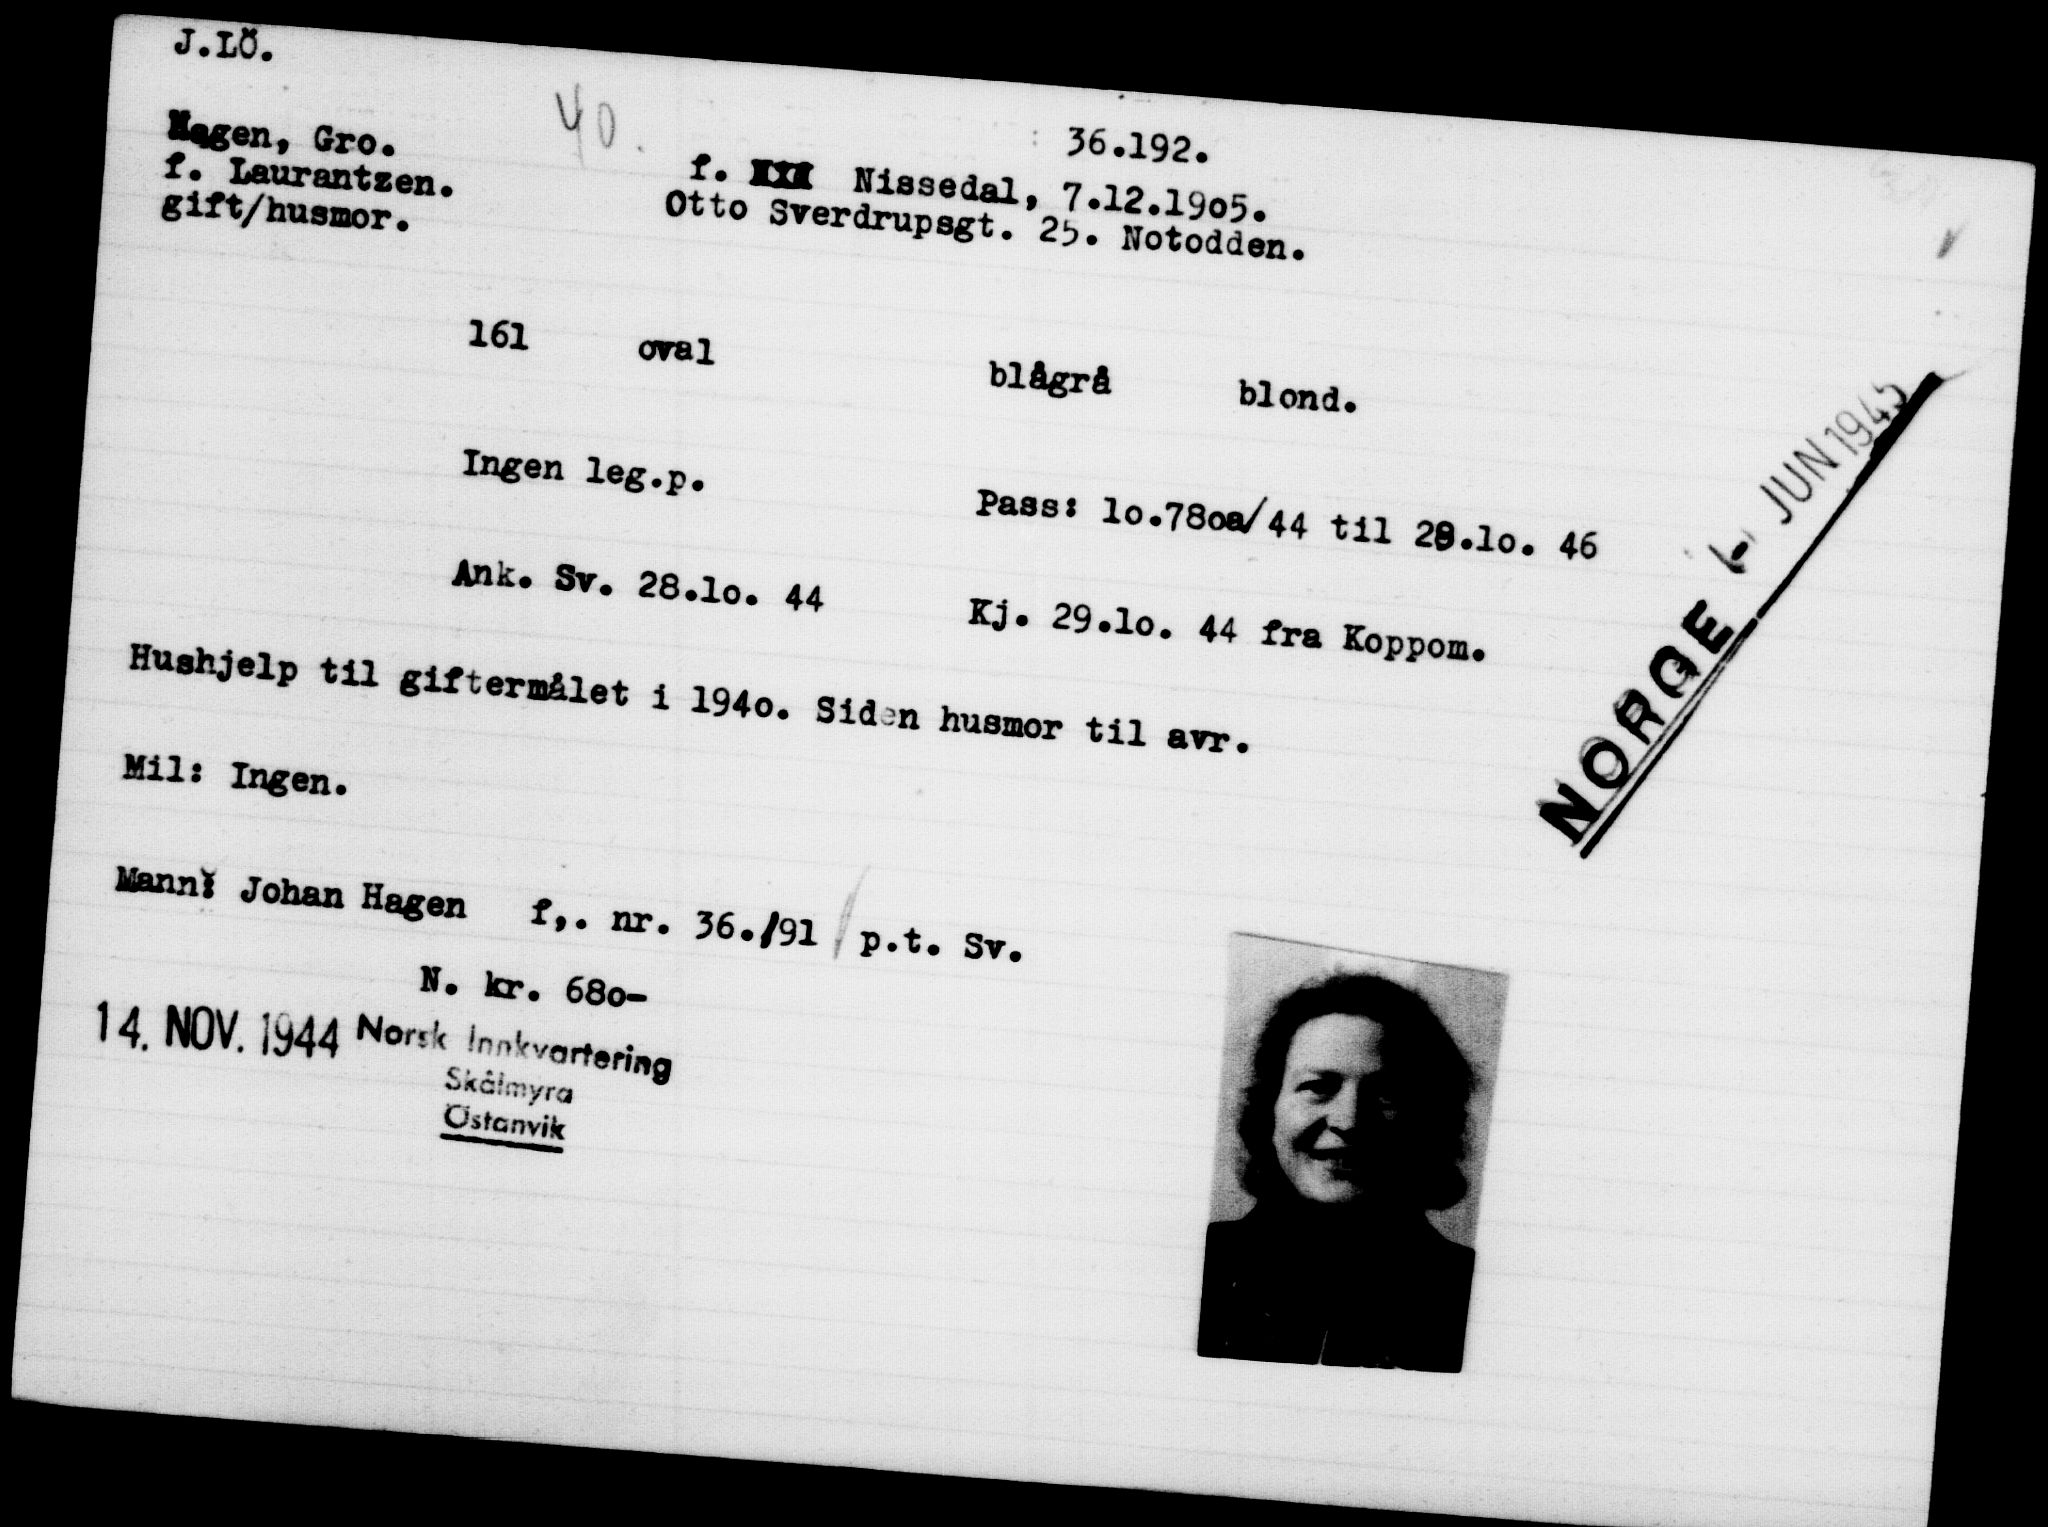 J.LÖ.
40.
36.192.
Hagen, Gro.
f. Laurantzen.
gift/husmor.
f. Nissedal, 7.12.19o5.
Otto Sverdrupsgt. 25. Notodden.
161 oval blågrå blond.
Ingen leg.p. Pass: lo.78oa/44 til 28.lo. 46
Ank. Sv. 28.lo. 44 Kj. 29.lo. 44 fra Koppom.
Hushjelp til giftermålet i 194o. Siden husmor til avr.
Mil: Ingen.
Mann: Johan Hagen f,. nr. 36./91 / p.t. Sv.
N. kr. 68o-
14. NOV. 1944 Norsk Innkvartering
Skålmyra
Östanvik
NORGE
JUN 1945